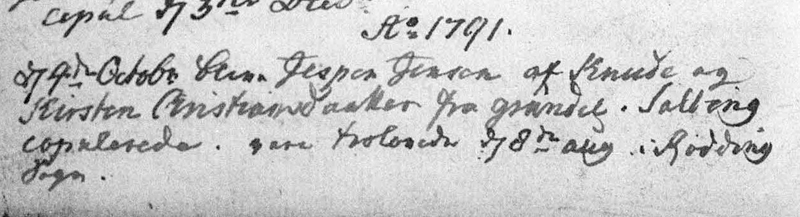 copul d 3die Dec
Ao 1791.
d 4de Octobr blev Jesper Jensen af Knude og
Kirsten Christiansdaatter fra Grinderslev Salling
copulerede. vare trolovede d 8de aug. i Rødding
Sogn.